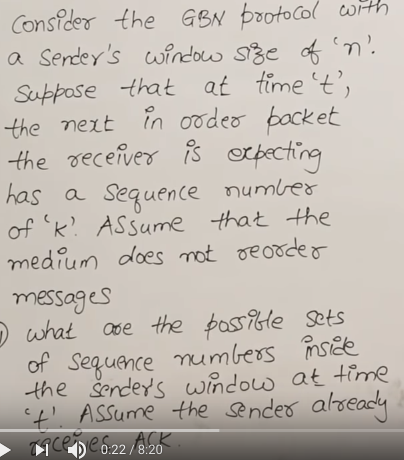 Consider the GBN protocol with
a Sender's window size of 'n'.
Suppose that at time 't',
the next in order packet
the receiver is expecting
has a sequence number
of 'k'. Assume that the
medium does not reorder
messages
what are the possible sets
of sequence numbers inside
the sender's window at time
't'. Assume the sender already
receives ACK.
0:22 / 8:20